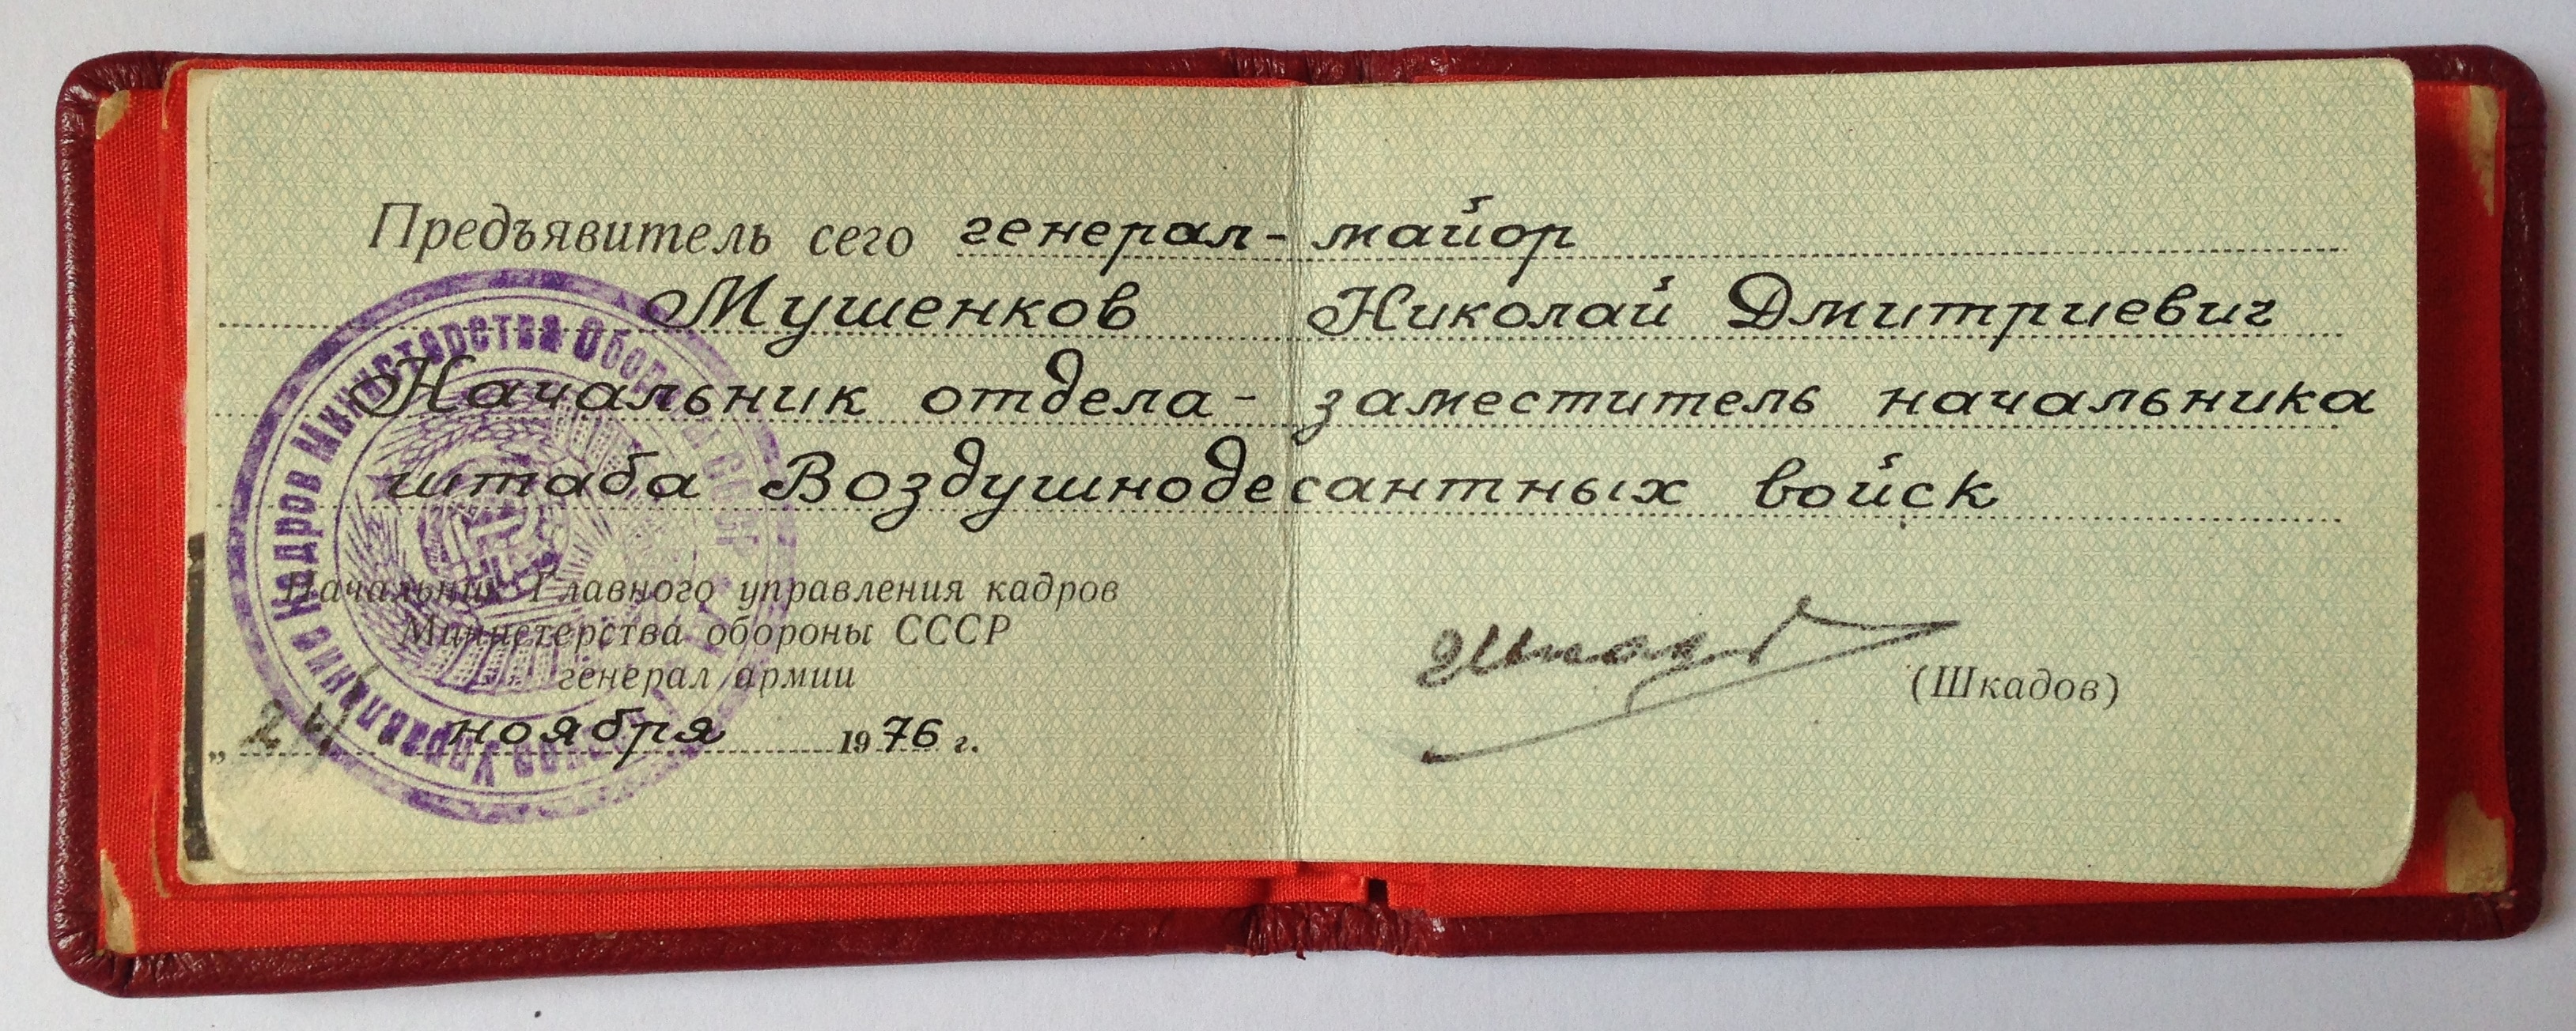 Предъявитель сего генерал-майор
Мушенков Николай Дмитриевич
Начальник отдела - заместитель начальника
штаба Воздушнодесантных войск
Начальник Главного управления кадров
Министерства обороны СССР
генерал армии
(Шкадов)
„ 24 ноября 1976 г.
Управление Кадров Министерства Обороны СССР